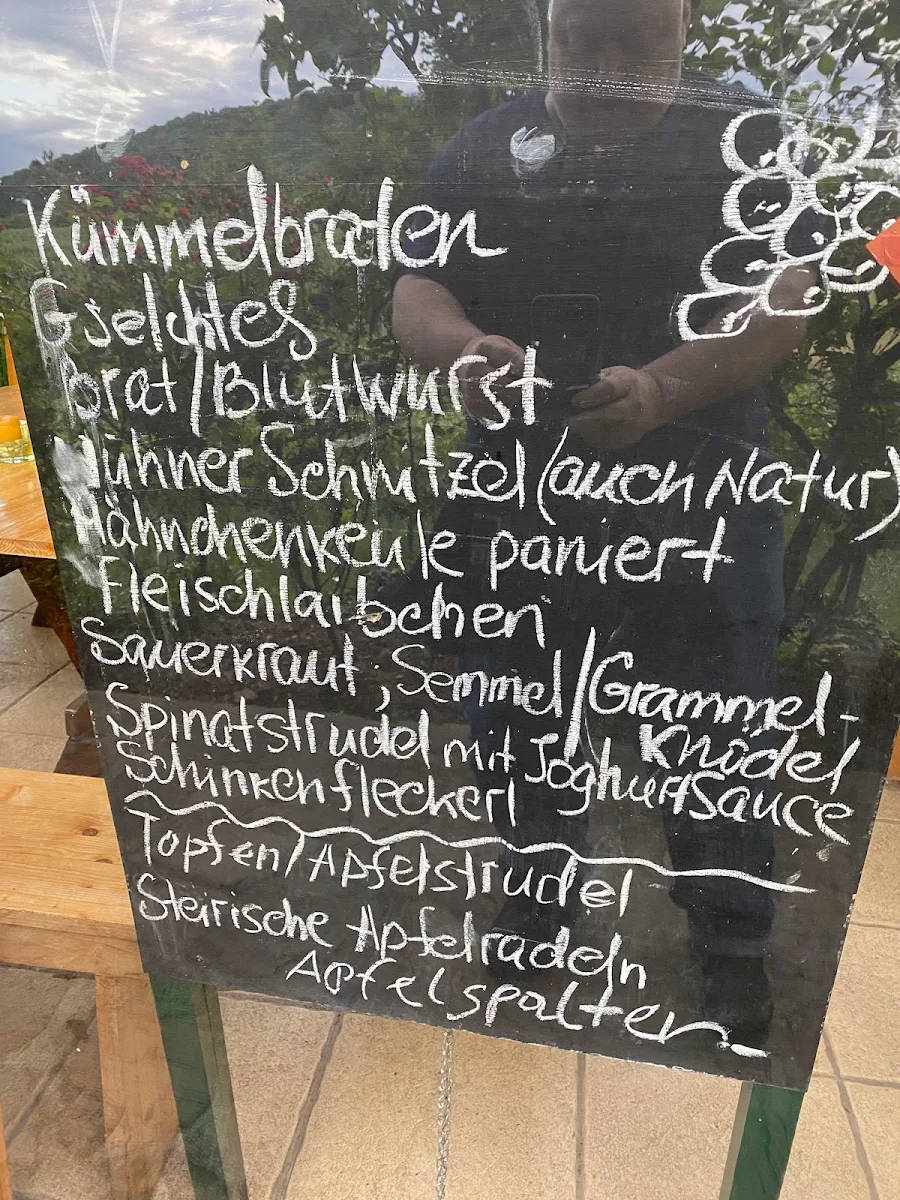 Kümmelbraten
Gselchtes
Brat/Blutwurst
Hühner Schnitzel (auch Natur)
Hähnchenkeule paniert
Fleischlaibchen
Sauerkraut, Semmel/Grammel-
Knödel
Spinatstrudel mit Joghurtsauce
Schinkenfleckerl
Topfen/Apfelstrudel
Steirische Apfelradeln
Apfelspalten